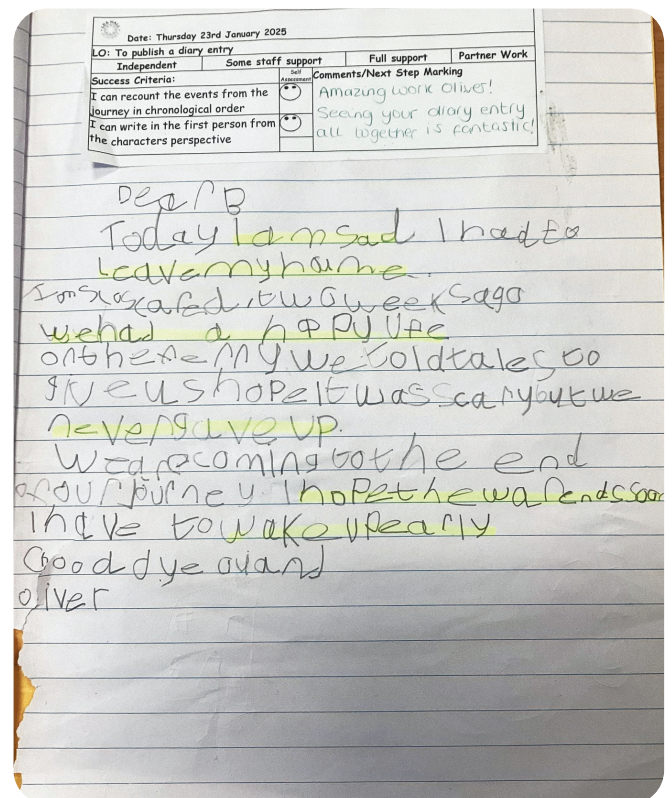 Date: Thursday 23rd January 2025
LO: To publish a diary entry
Independent Some staff support Full support Partner Work
Success Criteria: Self Assessment Comments/Next Step Marking
I can recount the events from the journey in chronological order
I can write in the first person from the characters perspective
Amazing work Oliver!
Seeing your diary entry
all together is fantastic!
Dear B
Today I am sad I had to
leave my home.
scared, two weeks ago
we had a happy life
on the we told tales to
give us hope It was scary but we
never gave up.
We are coming to the end
of our journey I hope the war ends soon
I have to wake up early
Good dye
oliver